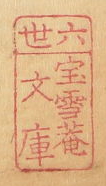 六世
宝雪菴
文庫